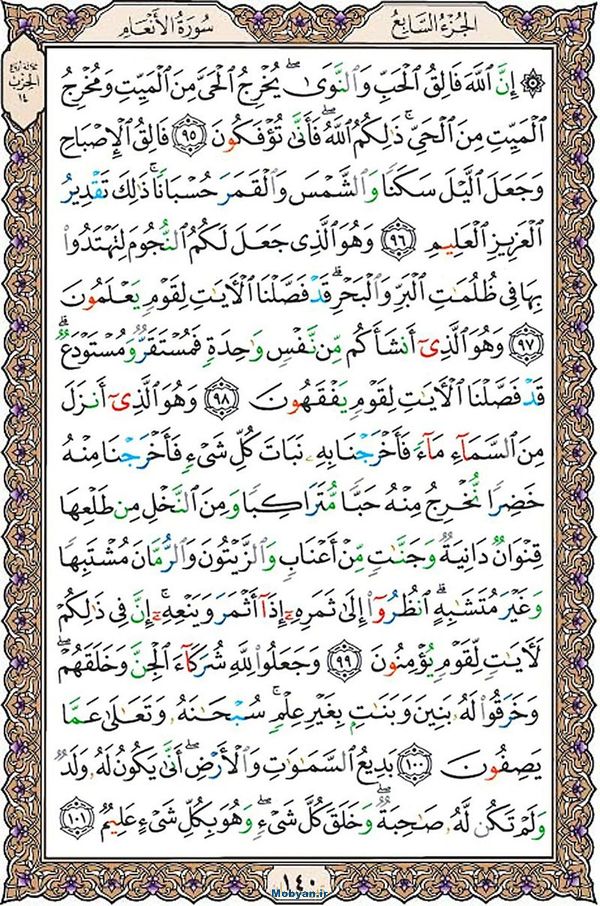 الجُزءُ السَّابِعُ
سُورَةُ الأَنعَامِ
الحِزب
١٤
۞ إِنَّ ٱللَّهَ فَالِقُ ٱلْحَبِّ وَٱلنَّوَىٰ ۖ يُخْرِجُ ٱلْحَىَّ مِنَ ٱلْمَيِّتِ وَمُخْرِجُ
ٱلْمَيِّتِ مِنَ ٱلْحَىِّ ۚ ذَٰلِكُمُ ٱللَّهُ ۖ فَأَنَّىٰ تُؤْفَكُونَ ٩٥ فَالِقُ ٱلْإِصْبَاحِ
وَجَعَلَ ٱلَّيْلَ سَكَنًا وَٱلشَّمْسَ وَٱلْقَمَرَ حُسْبَانًا ۚ ذَٰلِكَ تَقْدِيرُ
ٱلْعَزِيزِ ٱلْعَلِيمِ ٩٦ وَهُوَ ٱلَّذِى جَعَلَ لَكُمُ ٱلنُّجُومَ لِتَهْتَدُوا۟
بِهَا فِى ظُلُمَٰتِ ٱلْبَرِّ وَٱلْبَحْرِ ۗ قَدْ فَصَّلْنَا ٱلْءَايَٰتِ لِقَوْمٍ يَعْلَمُونَ
٩٧ وَهُوَ ٱلَّذِىٓ أَنشَأَكُم مِّن نَّفْسٍ وَٰحِدَةٍ فَمُسْتَقَرٌّ وَمُسْتَوْدَعٌ ۗ
قَدْ فَصَّلْنَا ٱلْءَايَٰتِ لِقَوْمٍ يَفْقَهُونَ ٩٨ وَهُوَ ٱلَّذِىٓ أَنزَلَ
مِنَ ٱلسَّمَآءِ مَآءً فَأَخْرَجْنَا بِهِۦ نَبَاتَ كُلِّ شَىْءٍ فَأَخْرَجْنَا مِنْهُ
خَضِرًا نُّخْرِجُ مِنْهُ حَبًّا مُّتَرَاكِبًا وَمِنَ ٱلنَّخْلِ مِن طَلْعِهَا
قِنْوَانٌ دَانِيَةٌ وَجَنَّٰتٍ مِّنْ أَعْنَابٍ وَٱلزَّيْتُونَ وَٱلرُّمَّانَ مُشْتَبِهًا
وَغَيْرَ مُتَشَٰبِهٍ ۗ ٱنظُرُوٓا۟ إِلَىٰ ثَمَرِهِۦٓ إِذَآ أَثْمَرَ وَيَنْعِهِۦٓ ۚ إِنَّ فِى ذَٰلِكُمْ
لَءَايَٰتٍ لِّقَوْمٍ يُؤْمِنُونَ ٩٩ وَجَعَلُوا۟ لِلَّهِ شُرَكَآءَ ٱلْجِنَّ وَخَلَقَهُمْ ۖ
وَخَرَقُوا۟ لَهُۥ بَنِينَ وَبَنَٰتٍۭ بِغَيْرِ عِلْمٍ ۚ سُبْحَٰنَهُۥ وَتَعَٰلَىٰ عَمَّا
يَصِفُونَ ١٠٠ بَدِيعُ ٱلسَّمَٰوَٰتِ وَٱلْأَرْضِ ۖ أَنَّىٰ يَكُونُ لَهُۥ وَلَدٌ
وَلَمْ تَكُن لَّهُۥ صَٰحِبَةٌ ۖ وَخَلَقَ كُلَّ شَىْءٍ ۖ وَهُوَ بِكُلِّ شَىْءٍ عَلِيمٌ ١٠١
١٤٠
Mobyan.ir